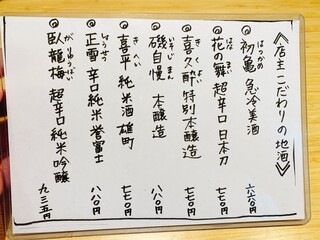 《店主こだわりの地酒》
◎ 初亀 急冷美酒 六六〇円
はつかめ
◎ 花の舞 超辛口 日本刀 七七〇円
はな まい
◎ 喜久酔 特別本醸造 七七〇円
きくよい
◎ 磯自慢 本醸造 八八〇円
いそじまん
◎ 喜平 純米酒 雄町 七七〇円
きへい
◎ 正雪 辛口純米 誉富士 八八〇円
しょうせつ
◎ 臥龍梅 超辛口 純米吟醸 九三五円
がりゅうばい